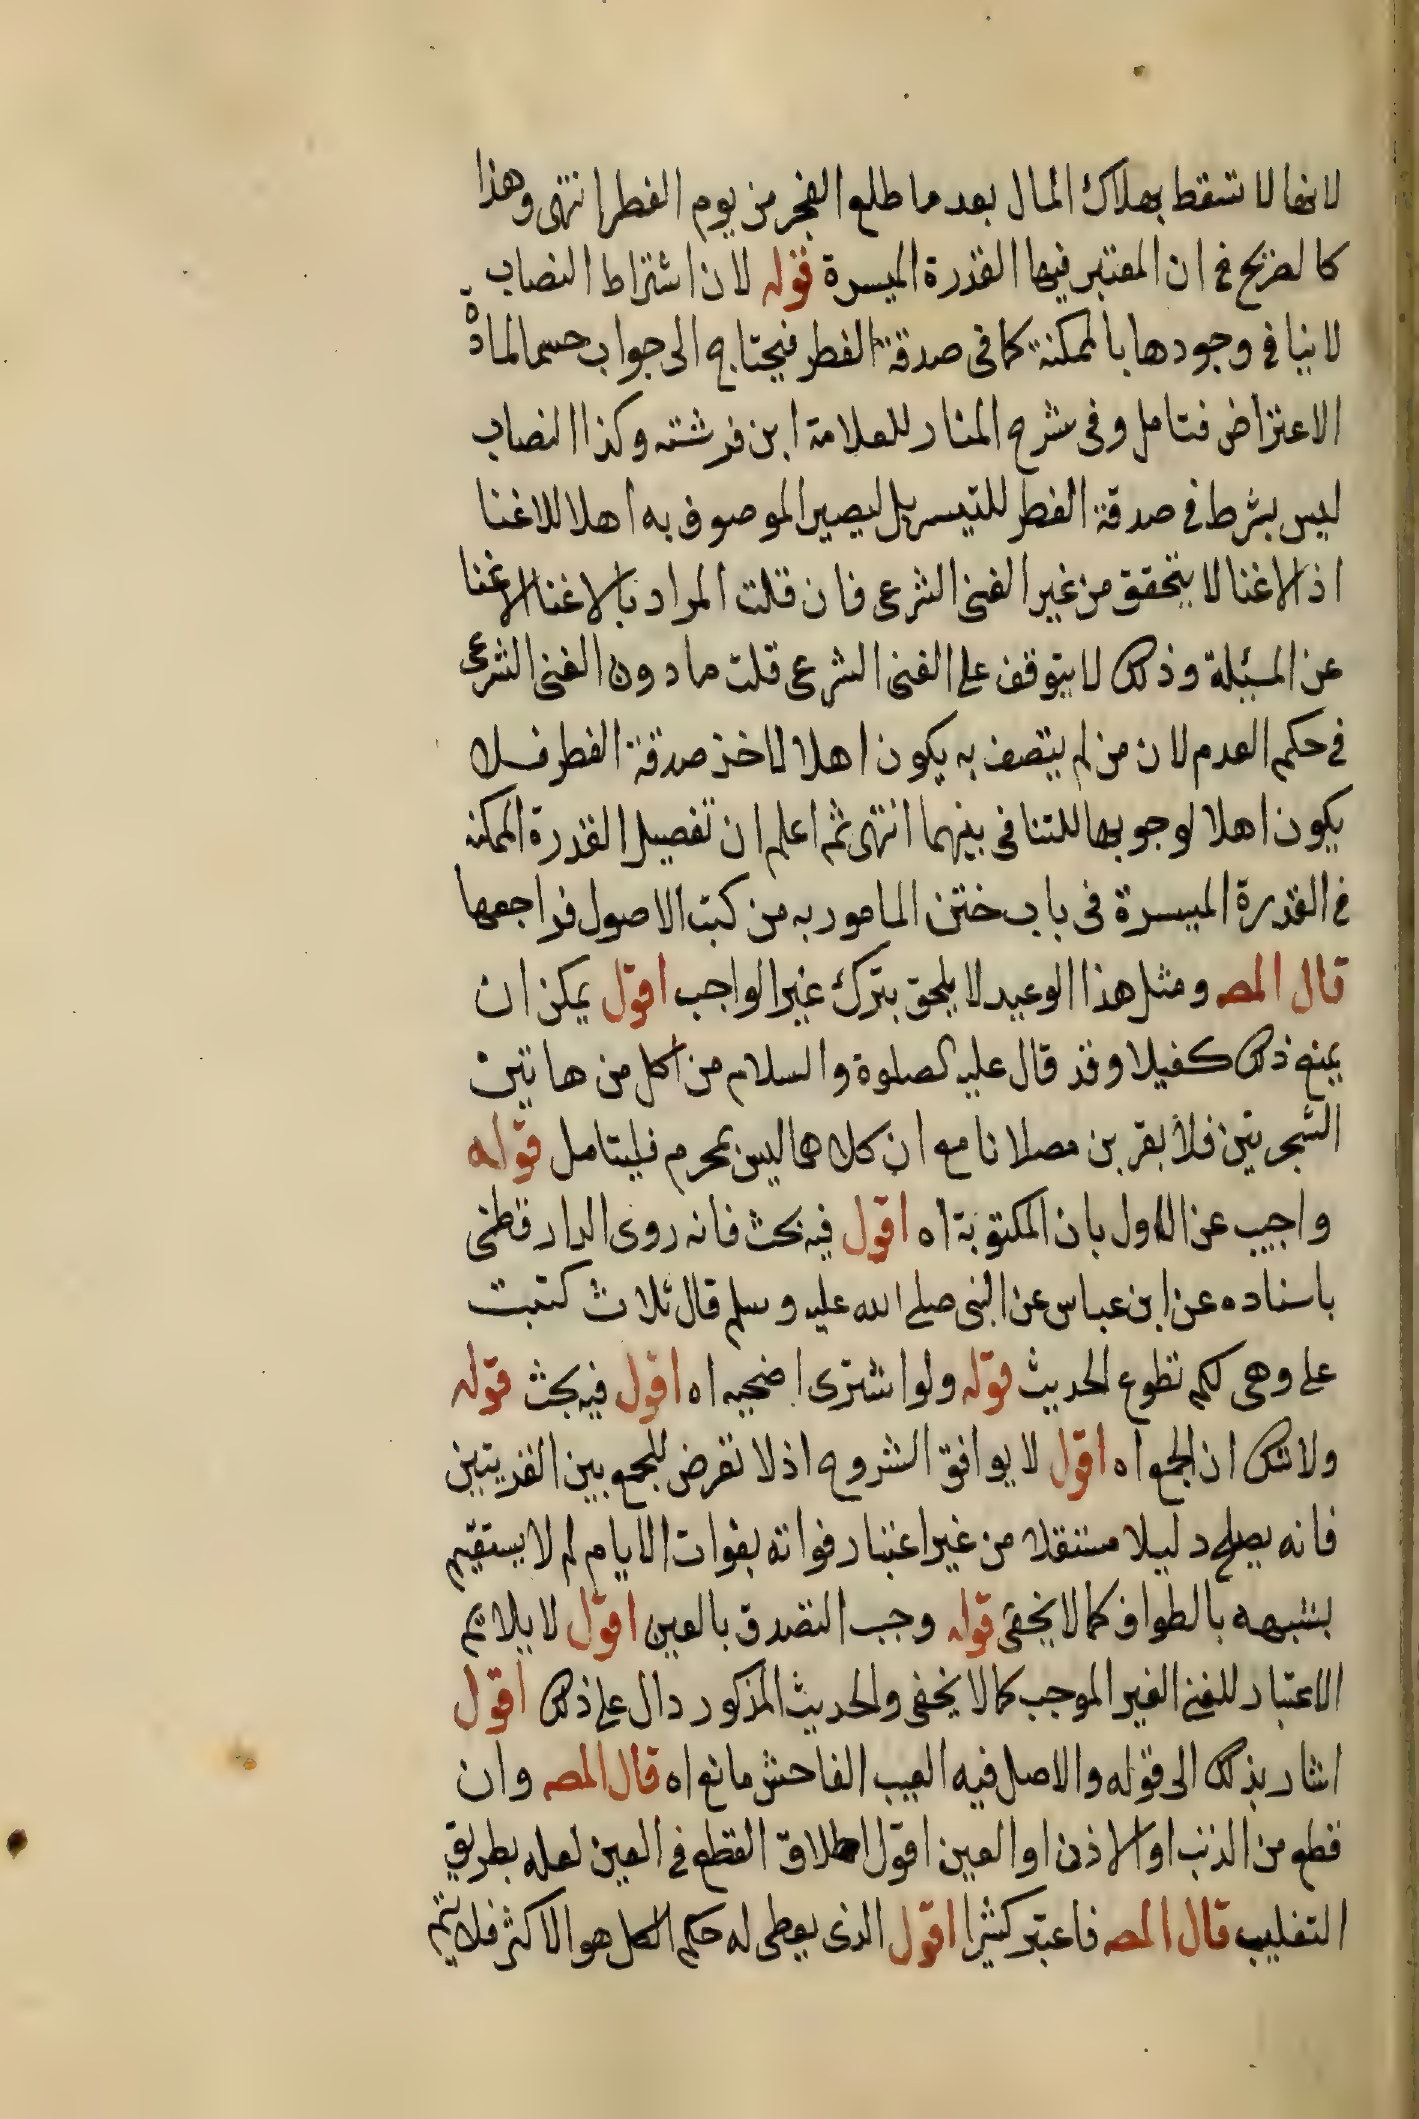 لانها لا تسقط بهلاك المال بعد ما طلع الفجر من يوم الفطر انتهى وهذا
كالصريح فى ان المعتبر فيها القدرة الميسرة قوله لان اشتراط النصاب
لا ينافى وجودها بالممكنة كما فى صدقة الفطر فيحتاج الى جواب حسما لمادة
الاعتراض فتامل وفى شرح المنار للعلامة ابن فرشته وكذا النصاب
ليس بشرط فى صدقة الفطر للتيسر بل ليصير الموصوف به اهلا للاغنا
اذ الاغنا لا يتحقق من غير الغنى الشرعى فان قلت المراد بالاغنا الاغنا
عن المسئلة وذلك لا يتوقف على الغنى الشرعى قلت ما دون الغنى الشرعى
فى حكم العدم لان من لم يتصف به يكون اهلا لاخذ صدقة الفطر فلا
يكون اهلا لوجوبها للتنافى بينهما انتهى ثم اعلم ان تفصيل القدرة الممكنه
فى القدرة الميسرة فى باب حسن المامور به من كتب الاصول فراجعها
قال المصـ ومثل هذا الوعيد لا يلحق بترك غير الواجب اقول يمكن ان
يمنع ذلك كفيلا وقد قال عليه الصلوة والسلام من اكل من هاتين
الشجرتين فلا يقربن مصلانا مع ان كلاهما ليس بمحرم فليتامل قوله
واجيب عن الاول بان المكتوبة اه اقول فيه بحث فانه روى الدارقطنى
باسناده عن ابن عباس عن النبى صلى الله عليه وسلم قال ثلاث كتبت
على وهى لكم تطوع الحديث قوله ولو اشترى اضحيه اه اقول فيه بحث قوله
ولا شك ان الجمع اه اقول لا يوافق الشروح اذ لا تعرض للجمع بين القربتين
فانه يصلح دليلا مستقلا من غير اعتبار فواته بفوات الايام لم لا يستقيم
بشبهه بالطواف كما لا يخفى قوله وجب التصدق بالعين اقول لا يلايم
الاعتبار للغنى الغير الموجب كما لا يخفى والحديث المذكور دال على ذلك اقول
اشار بذلك الى قوله والاصل فيه العيب الفاحش مانع اه قال المصـ وان
قطع من الذنب او الاذن او العين اقول اطلاق القطع فى العين لعله بطريق
التغليب قال المصـ فاعتبر كثيرا اقول الذى يعطى له حكم الكل هو الاكثر فلا يتم